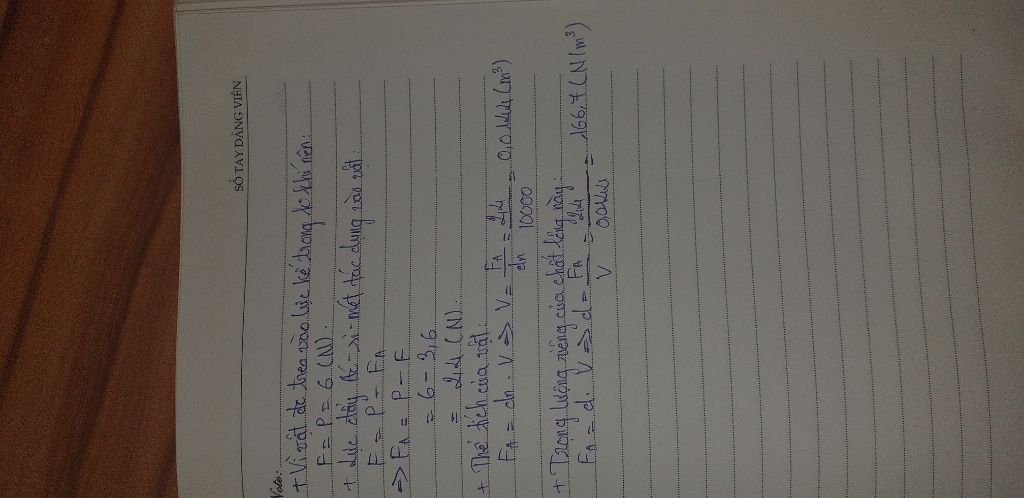 SỔ TAY ĐẢNG VIÊN
Note:
+ Vì vật đc treo vào lực kế trong k khí nên:
F = P = 6 (N).
+ Lực đẩy Ác-si-mét tác dụng vào vật:
F = P - FA
=> FA = P - F
= 6 - 3,6
= 2,4 (N).
+ Thể tích của vật:
FA = dn . V => V = FA/dn = 2,4/10000 = 0,0144 (m³)
+ Trọng lượng riêng của chất lỏng này:
FA = d . V => d = FA/V = 2,4/0,0144 = 166,7 (N/m³)